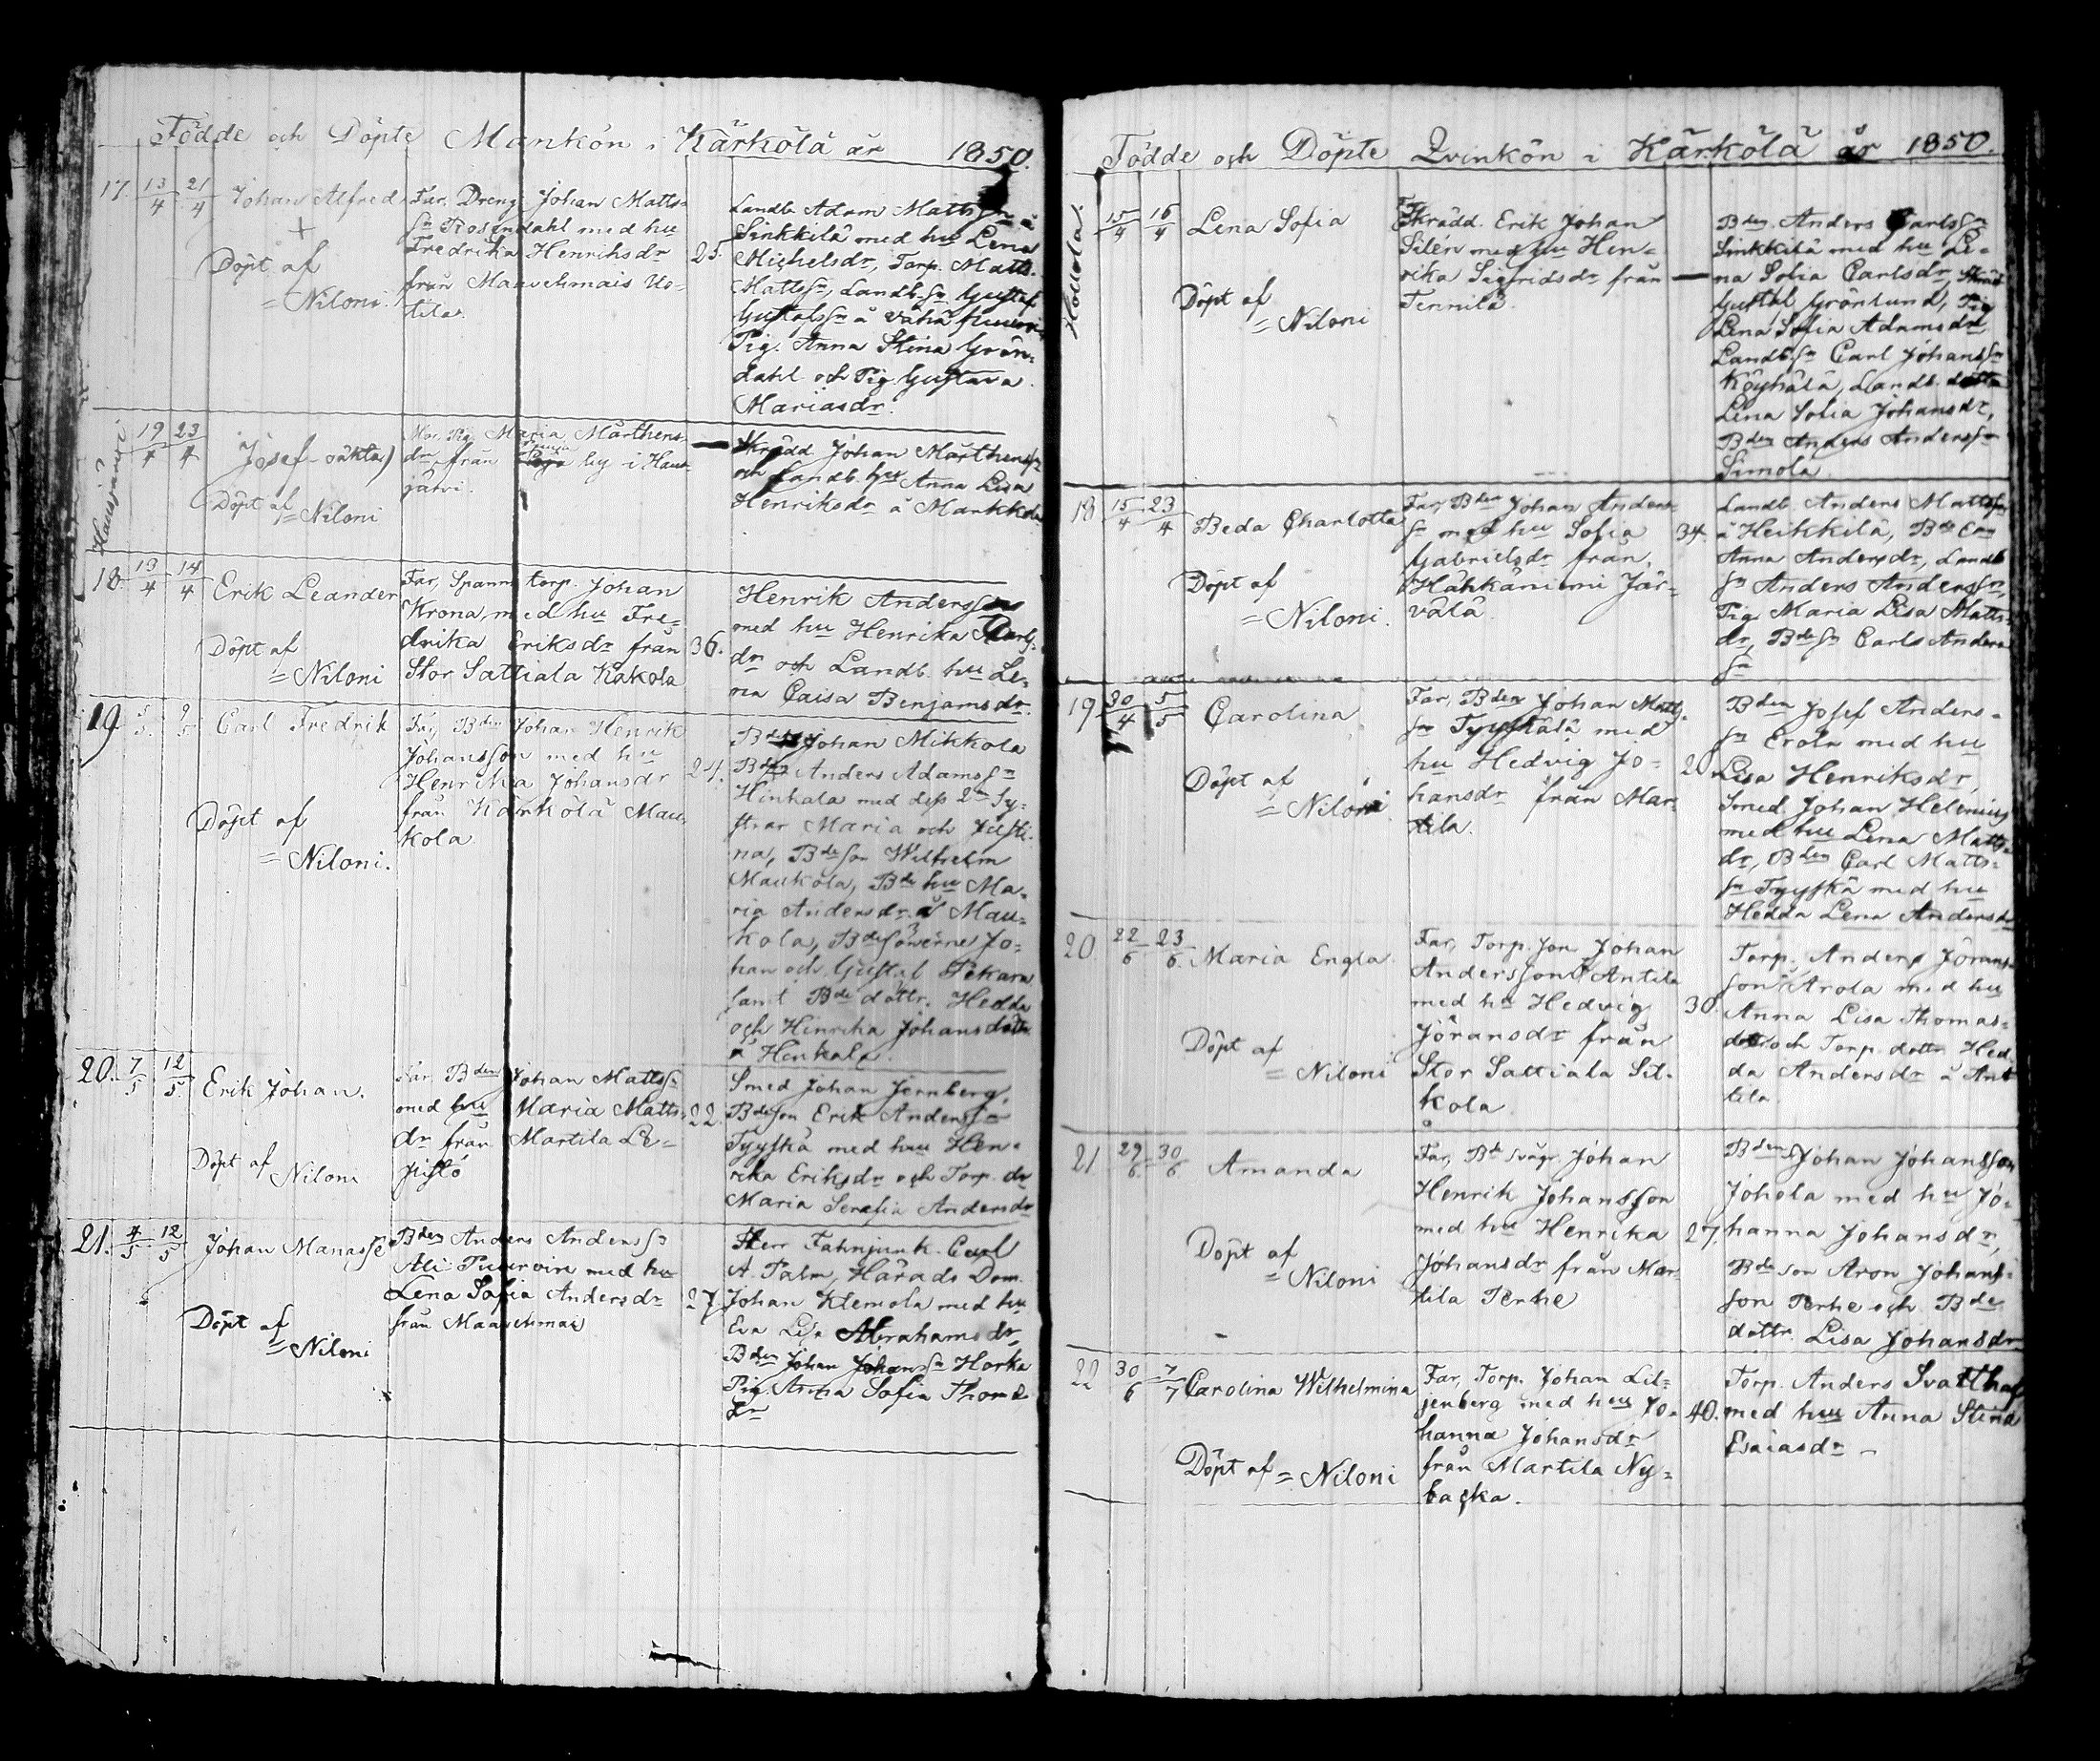 Födde och Döpte Mankön i Kärkölä år 1850.
17. 13/4 21/4 Johan Alfred
+
Döpt af
= Niloni.
Far, Dreng Johan Matts-
sn Rosendahl med hu
Fredrika Henriksdr
från Maavehmais Uo-
tila.
25.
Landb. Adam Mattssn å
Sinkkilä med hu Lena
Michelsdr, Torp. Matts
Mattssn, Landb. sn Gustaf
Gustafssn å Vähä
Pig. Anna Stina Grön-
dahl och Pig. Gustava
Mariasdr.
Hausjärvi
19/4 23/4
Josef - oäkta)
Döpt af
= Niloni
Mor, Pig. Maria Mårthens-
dr från by i Haus-
järvi.
—
Skrädd Johan Mårthenssn
och Landb. hu Anna Lisa
Henriksdr å Markkola
18. 13/4 14/4
Erik Leander
Döpt af
= Niloni
Far, Spanm torp. Johan
Krona, med hu Fre-
drika Eriksdr från
Stor Sattiala Kakola
36.
Henrik Anderssons
med hu Henrika Carls-
dr och Landb. hu Le-
na Caisa Benjamsdr.
19 5/5. 9/5
Carl Fredrik
Döpt af
= Niloni.
Far, Bden Johan Henrik
Johansson med hu
Henrika Johansdr
från Kärkölä Mau-
kola
24.
Bden Johan Mikkola
Bden Anders Adamssn
Hinkala med dess 2ne Sy-
strar Maria och Justi-
na, Bde son Wilhelm
Maukola, Bde hu Ma-
ria Andersdr å Mau-
kola, Bdesönerne Jo-
han och Gustaf Pekara
samt Bde döttr. Hedda
och Henrika Johansdöttr.
å Henkala.
20. 7/5 12/5
Erik Johan.
Döpt af
Niloni
Far, Bden Johan Mattssn
med hu Maria Matts-
dr från Martila Le-
pistö
22.
Smed Johan Jernberg,
Bdeson Erik Anderssn
Tyyskä med hu Hen-
rika Eriksdr och Torp. dr
Maria Serafia Andersdr
21. 7/5 12/5
Johan Manasse
Döpt af
= Niloni
Bden Anders Anderssn
Ali med hu
Lena Sofia Andersdr
från Maavehmai
27.
Herr Fahnjunk. Carl
A. Palm, Härads Dom.
Johan Klemola med hu
Eva Lisa Abrahamsdr,
Bden Johan Johanssn Horka
Pig. Anna Sofia Thomas
dr
Födde och Döpte Qvinkön i Kärkölä år 1850.
Hollola.
15/4 16/4 Lena Sofia
Döpt af
= Niloni
Skrädd. Erik Johan
Silén med hu Hen-
rika Sigfridsdr från
Tennilä
—
Bden Anders Carlssn
Sinkkilä med hu Le-
na Sofia Carlsdr,
Gustaf Grönlund, Pig
Lena Sofia Adamsdr
Landb. sn Carl Johanssn
Köyhälä, Landb. dottr
Lena Sofia Johansdr,
Bden Anders Anderssn
Simola
18 15/4 23/4
Beda Charlotta
Döpt af
= Niloni.
Far, Bden Johan Anders-
sn med hu Sofia
Gabrielsdr från
Hähkäniemi Jär-
välä
34.
Landb. Anders Mattssn
å Heikkilä, Bde
Anna Andersdr, Landb
sn Anders Anderssn,
Pig. Maria Lisa Matts-
dr, Bde sn Carls Anders
sn
19 30/4 5/5
Carolina
Döpt af
= Niloni.
Far, Bden Johan Matts-
sn Tyyskälä med
hu Hedvig Jo-
hansdr från Mar-
tila.
20
Bden Josef Anders-
sn Erola med hu
Lisa Henriksdr,
Smed Johan Helenius
med hu Lena Matts-
dr, Bden Carl Matts-
sn Tyyskä med hu
Hedda Lena Andersdr
20. 22/6 23/6.
Maria Engla
Döpt af
= Niloni
Far, Torp. son Johan
Andersson Antila
med hu Hedvig
Jöransdr från
Stor Sattiala Sil-
kola
30.
Torp. Anders Jörans-
son Arola med hu
Anna Lisa Thomas-
dotter och Torp. dottr Hed-
da Andersdr å Ant-
tila
21 29/6. 30/6
Amanda
Döpt af
= Niloni
Far, Bde svågr. Johan
Henrik Johansson
med hu Henrika
Johansdr från Mar-
tila Perhe
27
Bden Johan Johansson
Johola med hu Jo-
hanna Johansdr,
Bde son Aron Johans-
son Perhe och Bde
dottr. Lisa Johansdr
22 30/6 7/7
Carolina Wilhelmina
Döpt af = Niloni
Far, Torp. Johan Lil-
jenberg med hu Jo-
hanna Johansdr
från Martila Ny-
backa.
40.
Torp. Anders Svarthaf
med hu Anna Stina
Esaiasdr –